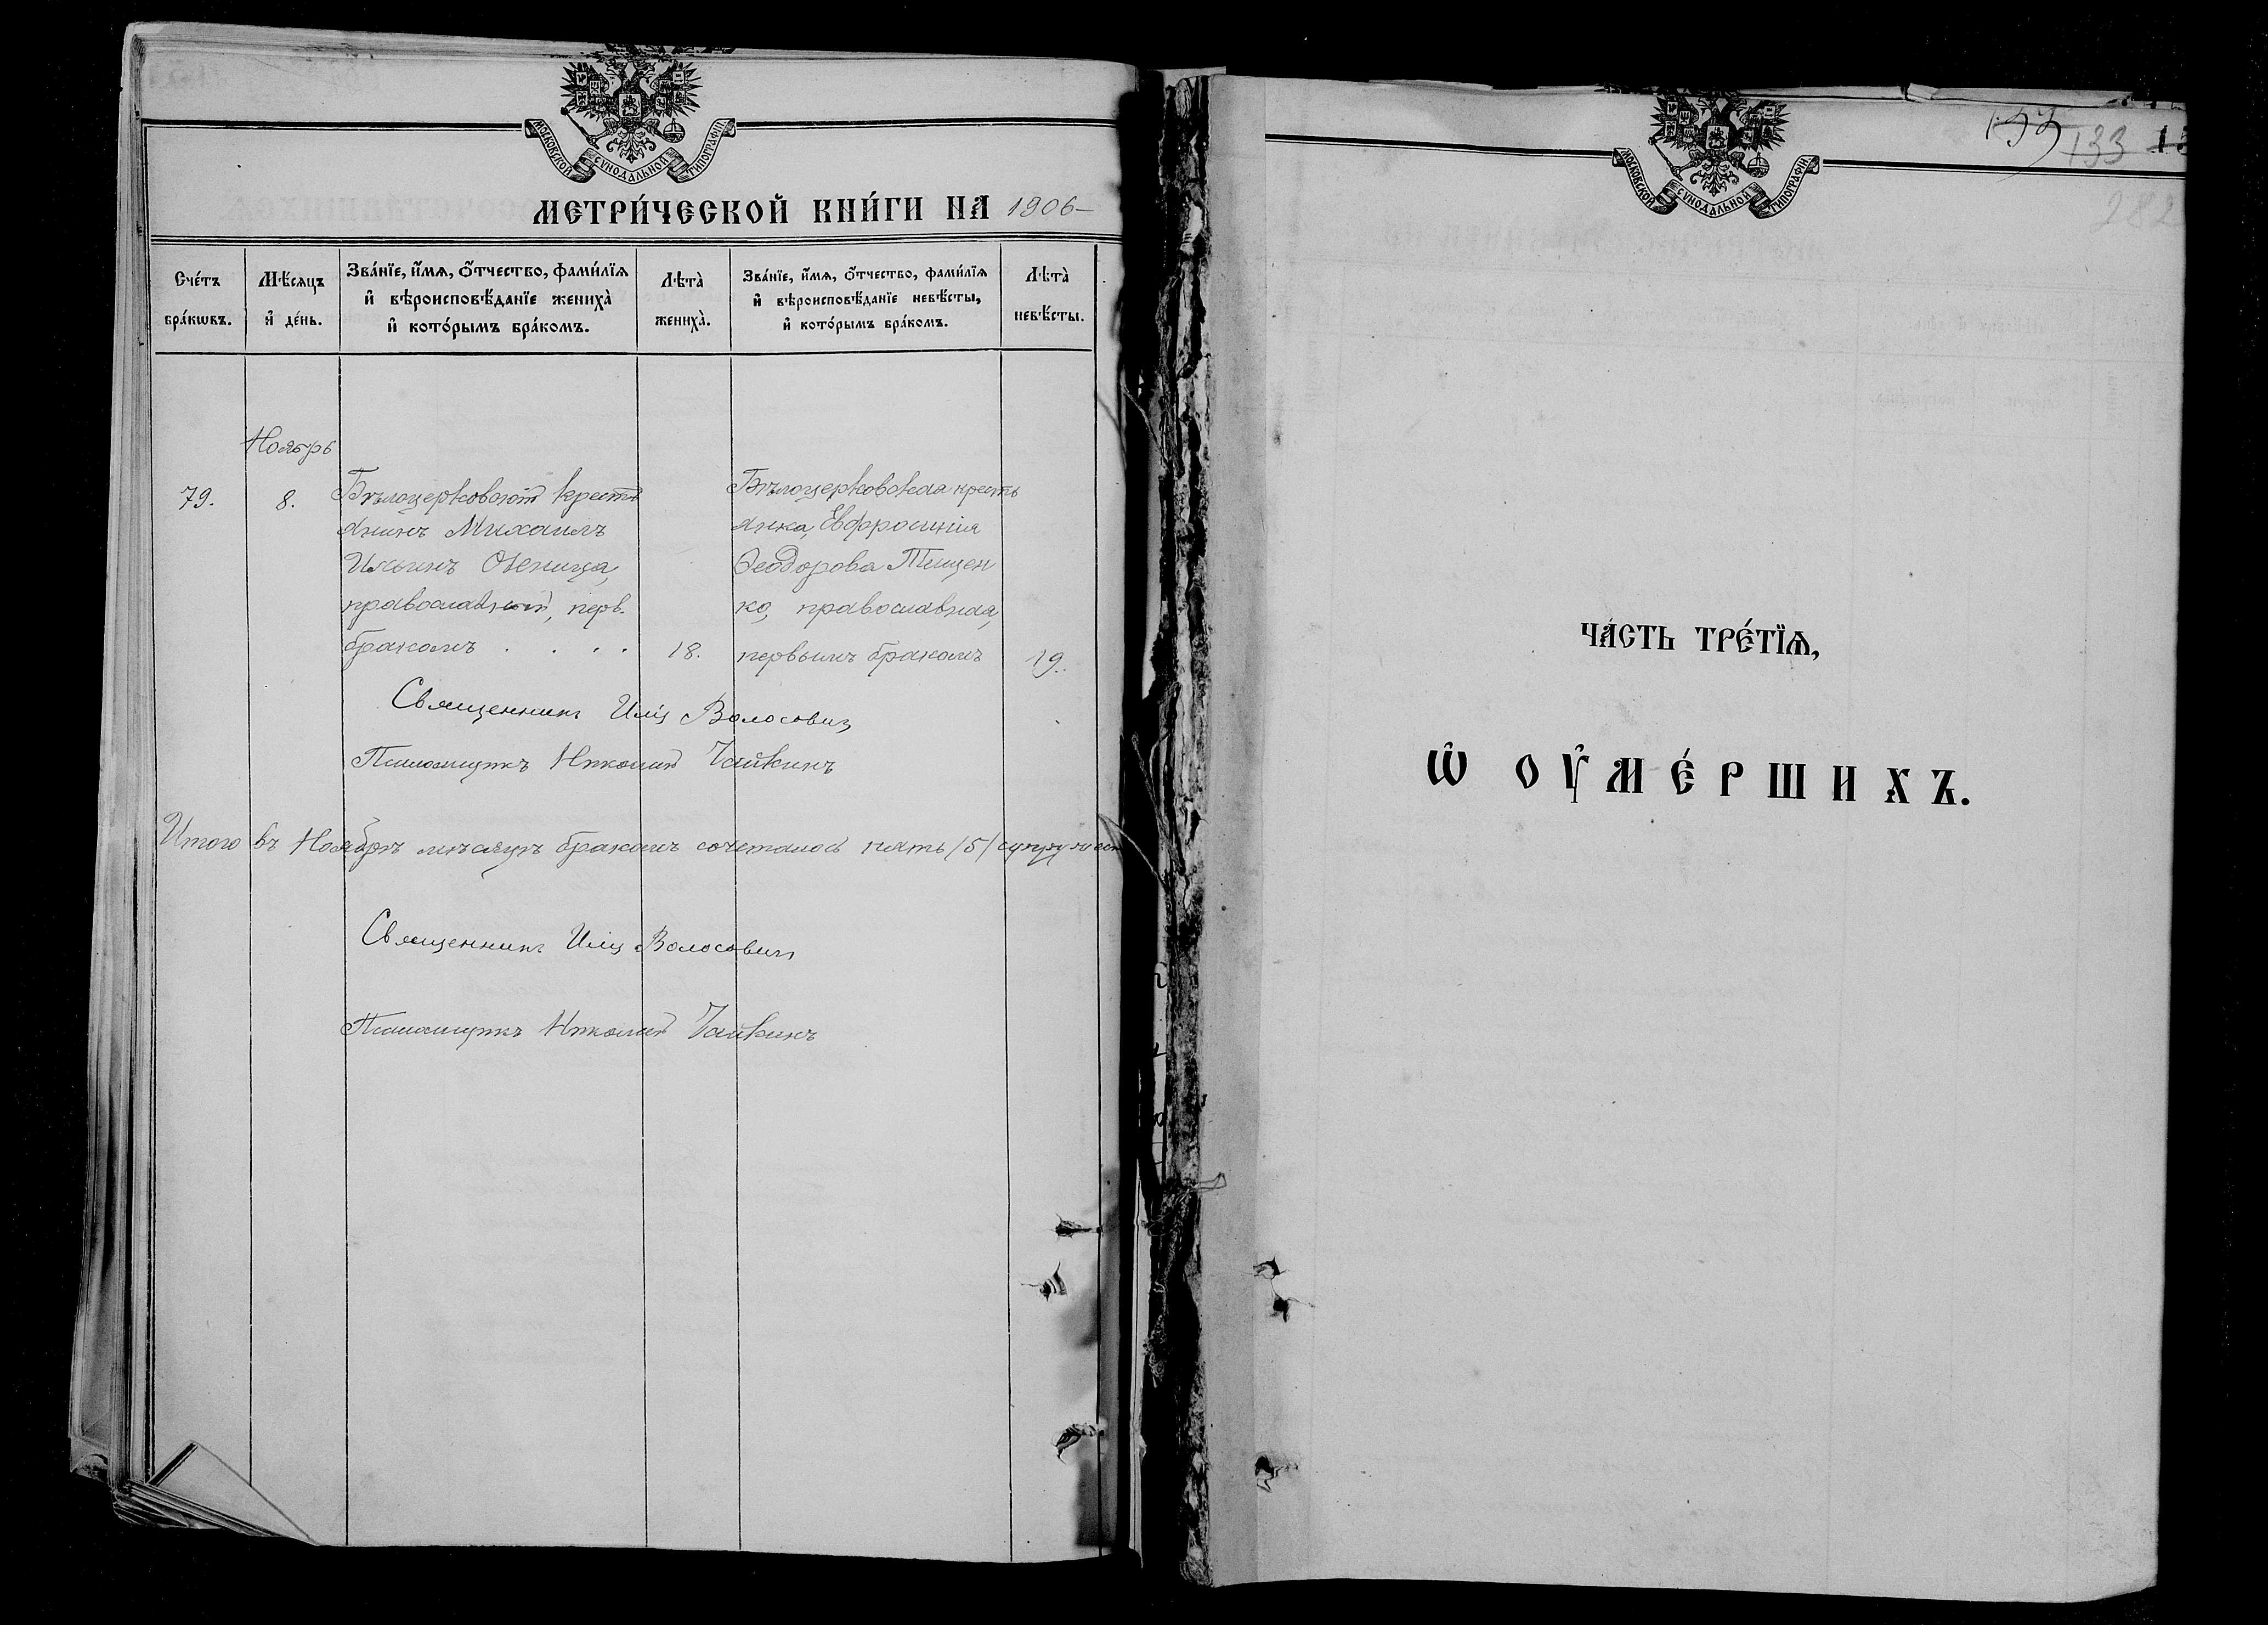 МОСКОВСКОЙ СѴНОДАЛЬНОЙ ТИПОГРАФІИ
МЕТРИ́ЧЕСКОЙ КНИ́ГИ НА 1906
Сче́тъ бра́кѡвъ.
Мѣ́сяцъ и҆ де́нь.
Зва́нїе, и҆́мя, ѻ҆́тчество, фами́лїя
и҆ вѣроисповѣ́данїе жениха̀
и҆ кото́рымъ бра́комъ.
Лѣта̀ жениха̀.
Зва́нїе, и҆́мя, ѻ҆́тчество, фами́лїя
и҆ вѣроисповѣ́данїе невѣ́сты,
и҆ кото́рымъ бра́комъ.
Лѣта̀ невѣ́сты.
Ноябрь
79.
8.
Бѣлоцерковскій кресть
янинъ Михаилъ
Ильинъ
православный, перв.
бракомъ . . . .
18.
Бѣлоцерковская кресть
янка, Евфросинія
Ѳеодорова Тищен
ко, православная,
первымъ бракомъ
19.
Священникъ Илія Волосовичъ
Псаломщикъ Николай Чайкинъ
Итого въ Ноябрѣ мѣсяцѣ бракомъ сочеталось пять /5/
Священникъ Илія Волосовичъ
Псаломщикъ Николай Чайкинъ
МОСКОВСКОЙ СѴНОДАЛЬНОЙ ТИПОГРАФІИ
133
282
ЧА́СТЬ ТРЕ́ТЇѦ,
Ѡ҆ ОУ҆МЕ́РШИХЪ.